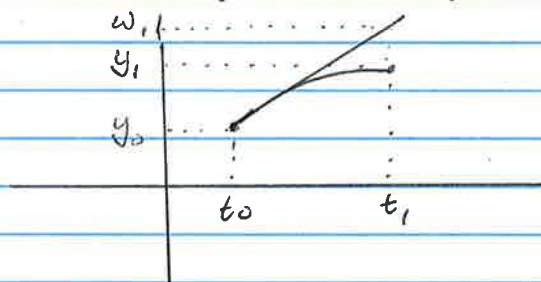 w₁
y₁
y₀
t₀ t₁